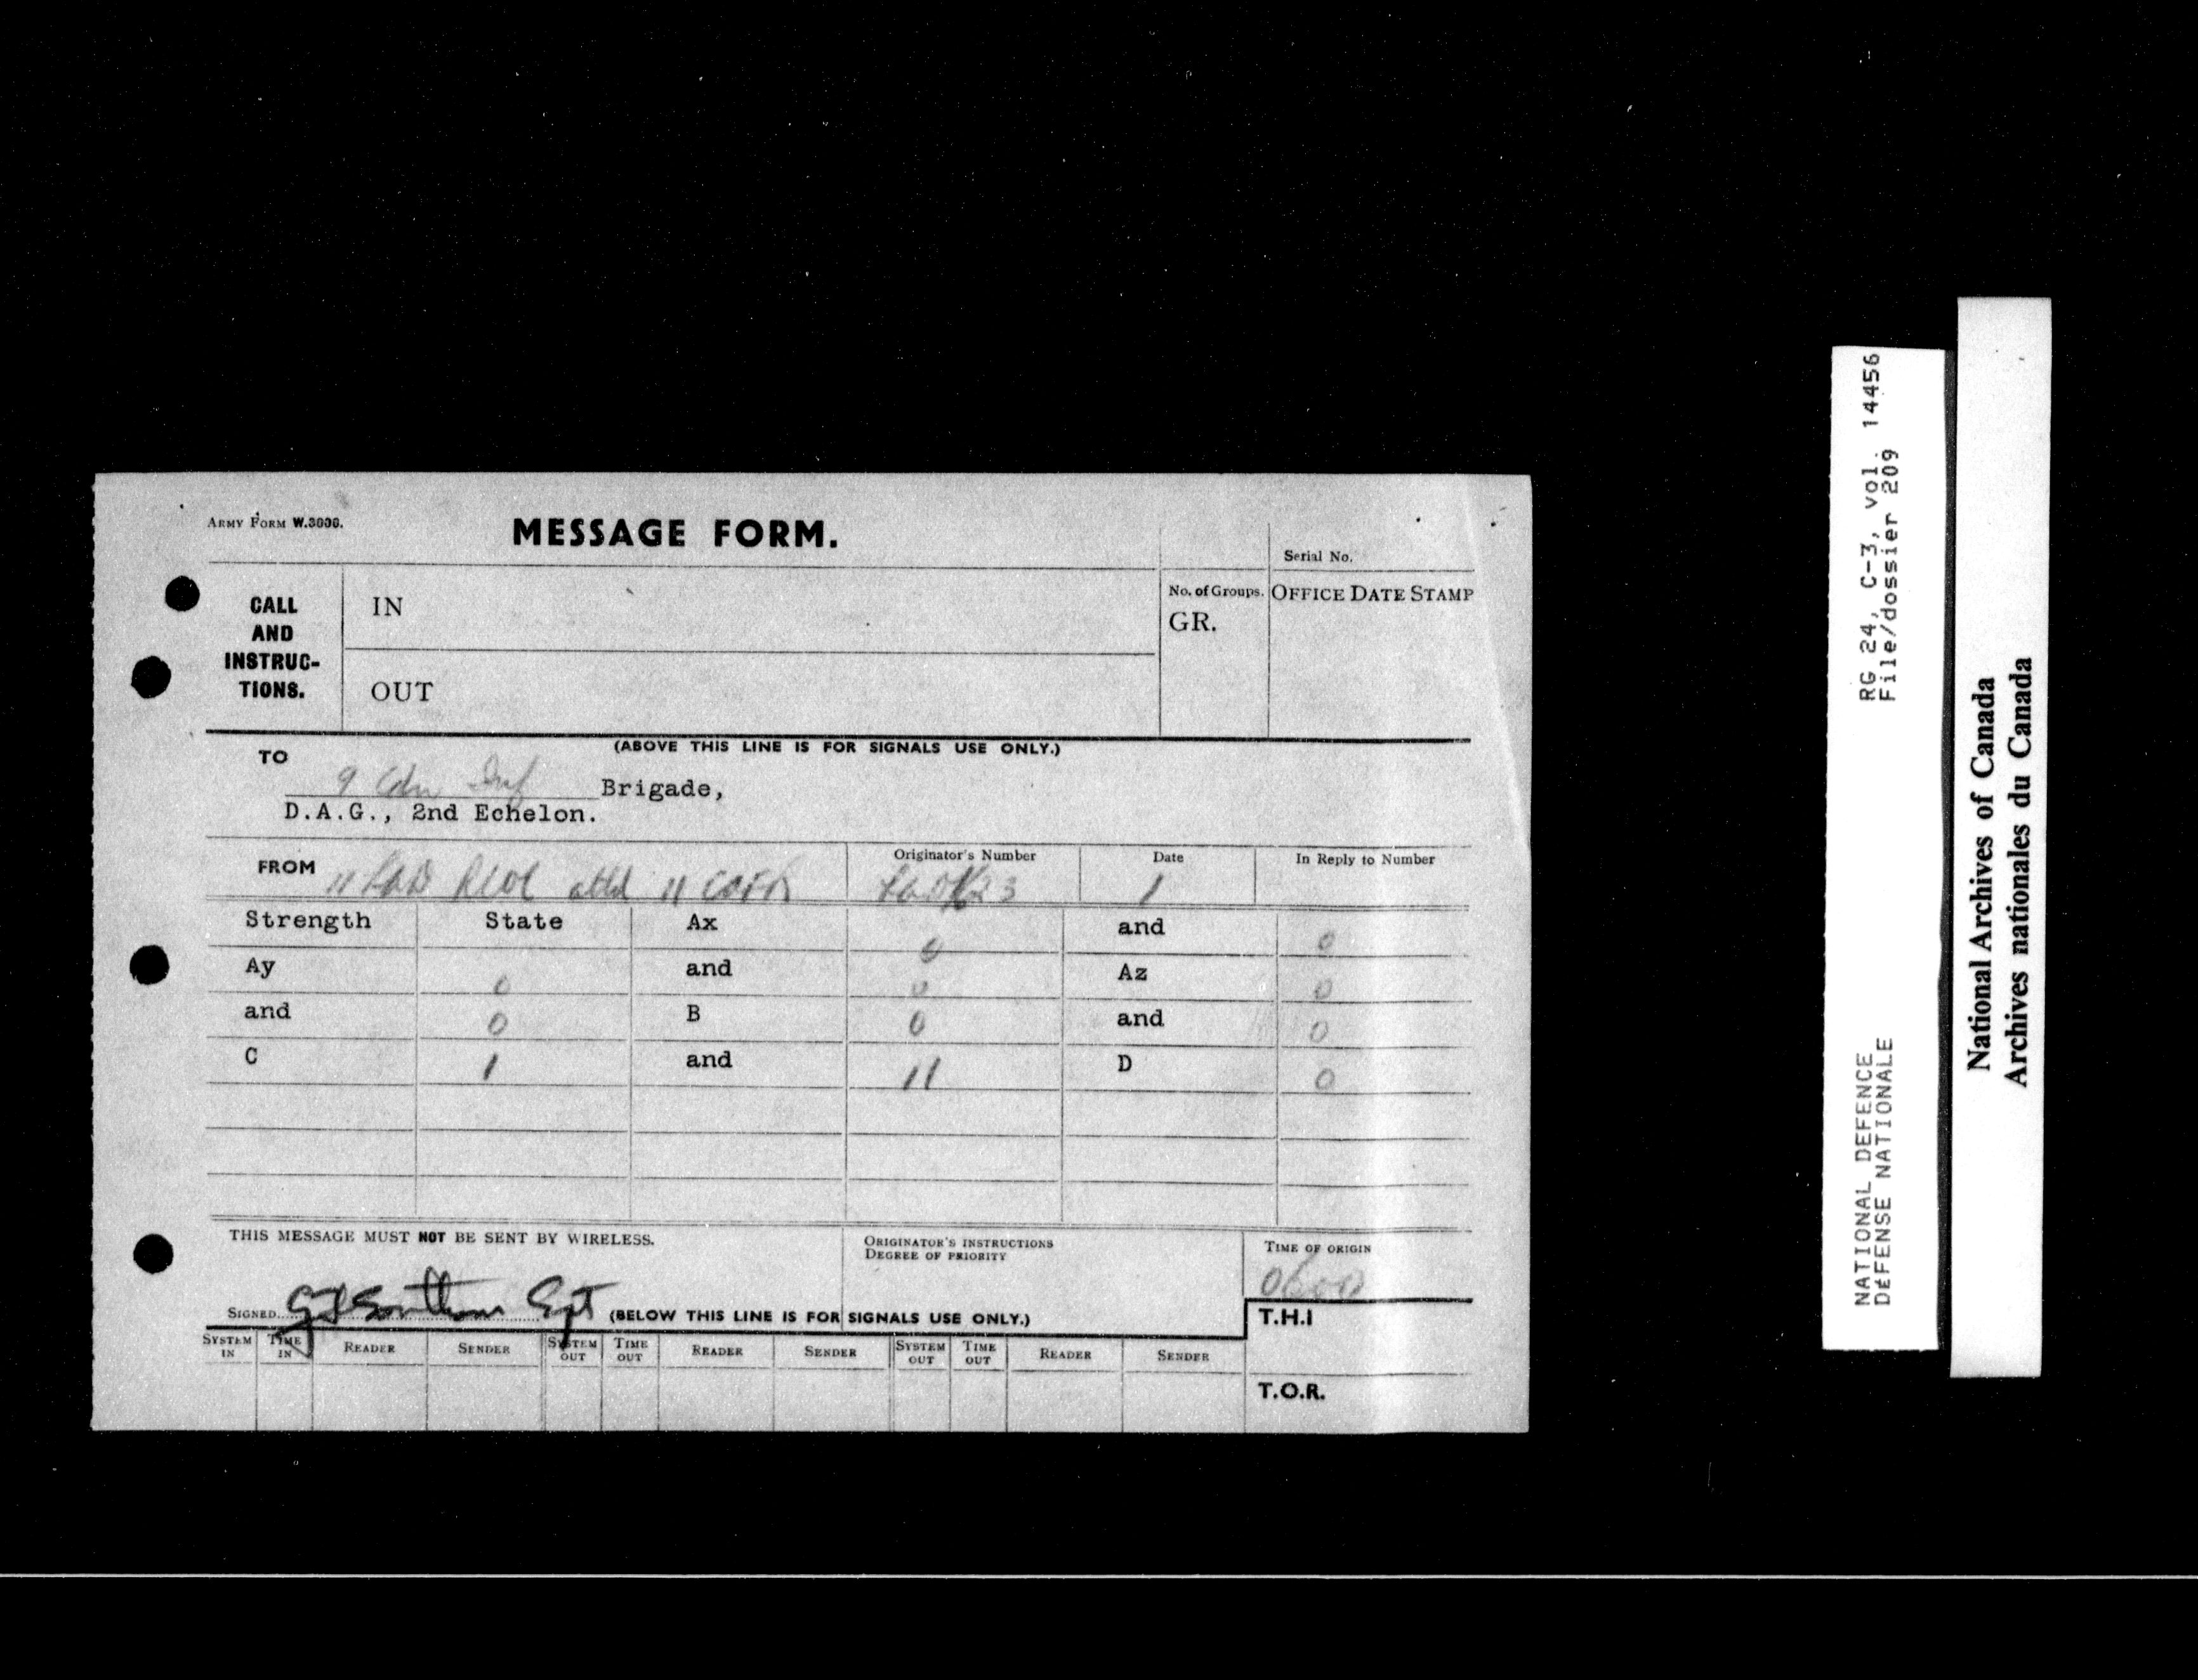 ARMY FORM W.3000.
MESSAGE FORM.
Serial No.
CALL AND INSTRUC-TIONS.
IN
OUT
No. of Groups.
GR.
OFFICE DATE STAMP
(ABOVE THIS LINE IS FOR SIGNALS USE ONLY.)
TO
9 Cdn Inf Brigade,
D.A.G., 2nd Echelon.
FROM 11 LAD attd 11
Originator's Number
Date
1
In Reply to Number
Strength State Ax 0 and 0
Ay 0 and 0 Az 0
and 0 B 0 and 0
C 1 and 11 D 0
THIS MESSAGE MUST NOT BE SENT BY WIRELESS.
ORIGINATOR'S INSTRUCTIONS
DEGREE OF PRIORITY
TIME OF ORIGIN
0600
SIGNED
(BELOW THIS LINE IS FOR SIGNALS USE ONLY.)
T.H.I
SYSTEM IN TIME IN READER SENDER SYSTEM OUT TIME OUT READER SENDER SYSTEM OUT TIME OUT READER SENDER
T.O.R.
RG 24, C-3, vol. 14456
File/dossier 209
NATIONAL DEFENCE
DÉFENSE NATIONALE
National Archives of Canada
Archives nationales du Canada